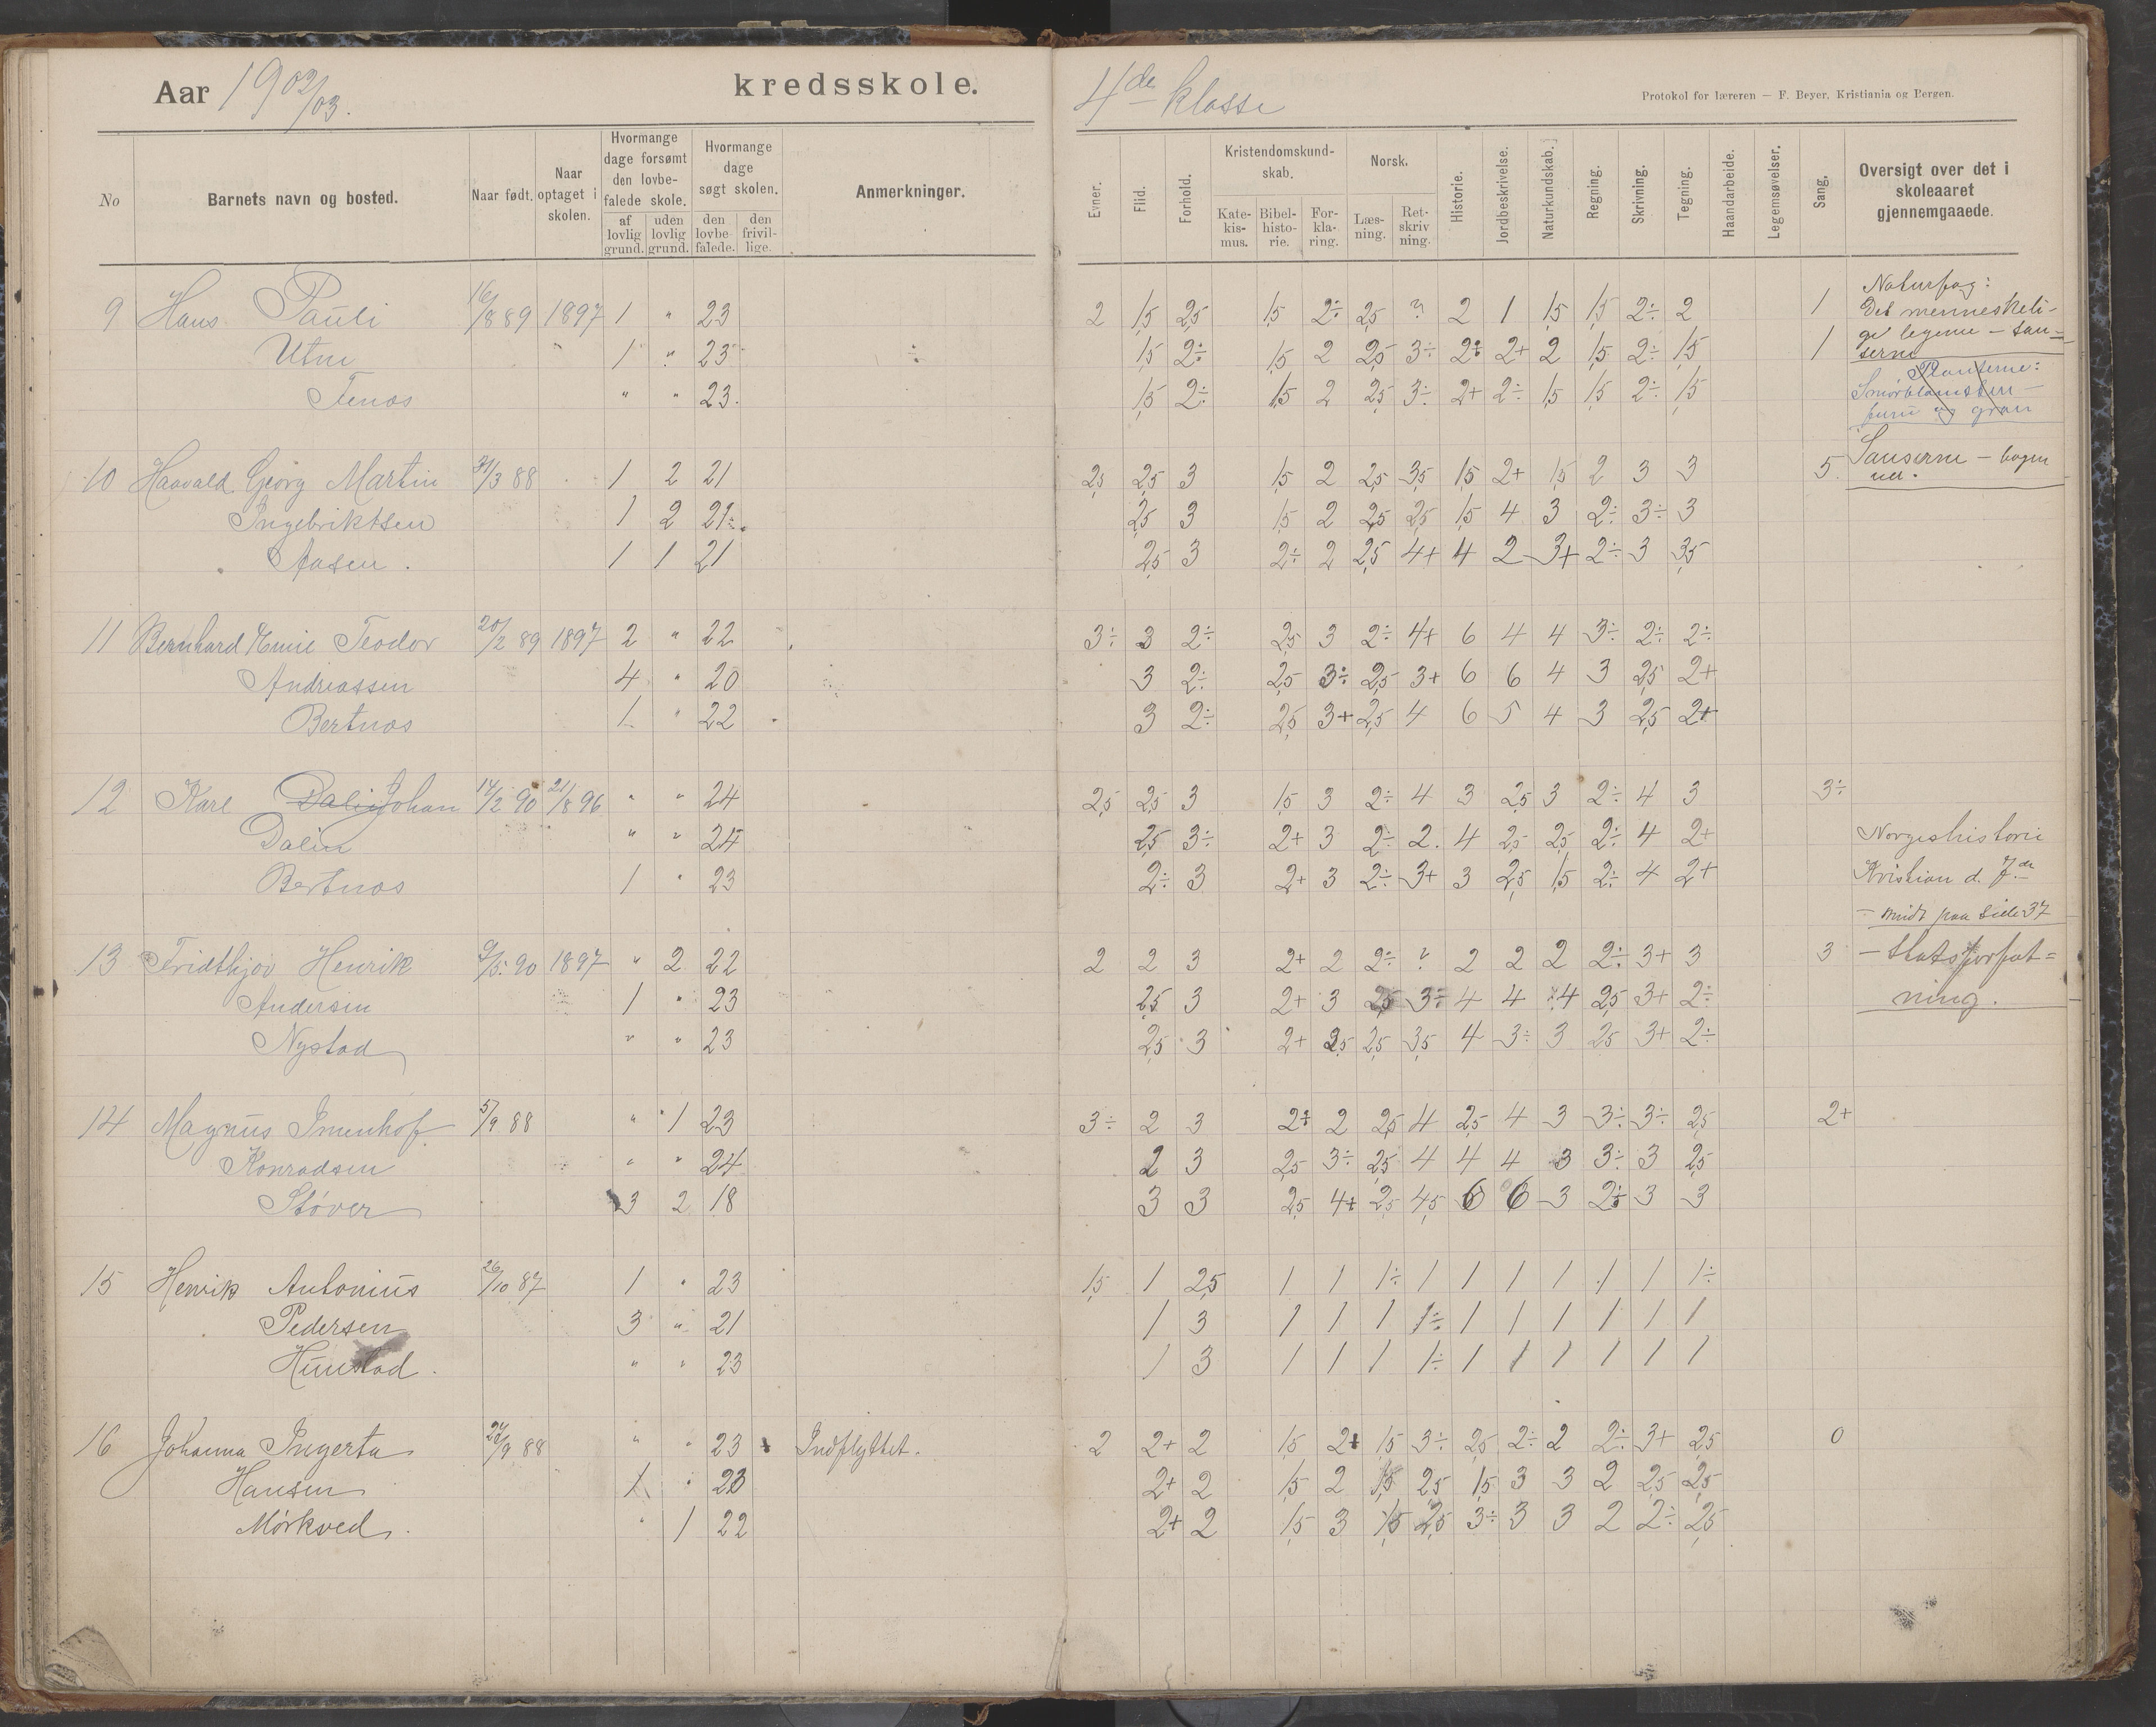 Aar 1902/03. kredsskole. 4de klasse
Protokol for læreren — F. Beyer, Kristiania og Bergen.
No | Barnets navn og bosted. | Naar født. | Naar optaget i skolen. | Hvormange dage forsømt den lovbefalede skole. af lovlig grund. | uden lovlig grund. | Hvormange dage søgt skolen. den lovbefalede. | den frivillige. | Anmerkninger. | Evner. | Flid. | Forhold. | Kristendomskundskab. Katekismus. | Bibelhistorie. | Forklaring. | Norsk. Læsning. | Retskrivning. | Historie. | Jordbeskrivelse. | Naturkundskab. | Regning. | Skrivning. | Tegning. | Haandarbeide. | Legemsøvelser. | Sang. | Oversigt over det i skoleaaret gjennemgaaede.
9 Hans Pauli 16/8 89 1897 1 " 23 2 1,5 2,5 1,5 2÷ 2,5 ? 2 1 1,5 1,5 2÷ 2 1
Utne 1 " 23 ÷ 1,5 2÷ 1,5 2 2,5 3÷ 2÷ 2+ 2 1,5 2÷ 1,5 1
Tenos " " 23. 1,5 2÷ 1,5 2 2,5 3÷ 2+ 2÷ 1,5 1,5 2÷ 1,5
Naturfag:
Det menneskeli-
ge legeme — san=
serne
Planterne:
Smørblomsten —
furu og gran
10 Haavald Georg Martin 31/3 88 1 2 21 2,5 2,5 3 1,5 2 2,5 3,5 1,5 2+ 1,5 2 3 3 5.
Ingebriktsen 1 2 21÷. 2,5 3 1,5 2 2,5 2,5 1,5 4 3 2÷ 3÷ 3
Aasen. 1 1 21 2,5 3 2÷ 2 2,5 4+ 4 2 3+ 2÷ 3 3,5
Sanserne — bogen
ud.
11 Bernhard Emil Teodor 20/2 89 1897 2 " 22 3÷ 3 2÷ 2,5 3 2÷ 4+ 6 4 4 3÷ 2÷ 2÷
Andreassen 4 " 20 3 2÷ 2,5 3÷ 2,5 3+ 6 6 4 3 2,5 2+
Bertnos 1 " 22 3 2÷ 2,5 3+ 2,5 4 6 5 4 3 2,5 2+
12 Karl Dalin Johan 14/2 90 21/8 96 " " 24 2,5 2,5 3 1,5 3 2÷ 4 3 2,5 3 2÷ 4 3 3÷
Dalin " " 24 2,5 3÷ 2+ 3 2÷ 2. 4 2,5 2,5 2÷ 4 2+
Bertnos 1 " 23 2÷ 3 2+ 3 2÷ 3+ 3 2,5 1,5 2÷ 4 2+
Norgeshistorie
Kristian d. 7de
— midt paa side 37
— Statsforfat=
ning.
13 Fridthjov Henrik 9/5. 90 1897 " 2 22 2 2 3 2+ 2 2÷ ? 2 2 2 2÷ 3+ 3 3
Andersen 1 " 23 2,5 3 2+ 3 2,5 3÷ 4 4 4 2,5 3+ 2÷
Nystad " " 23 2,5 3 2+ 2,5 2,5 3,5 4 3÷ 3 2,5 3+ 2÷
14 Magnus Imenhof 5/9 88 " 1 23 3÷ 2 3 2+ 2 2,5 4 2,5 4 3 3÷ 3÷ 2,5 2+
Konradsen " " 24 2 3 2,5 3÷ 2,5 4 4 4 3 3÷ 3 2,5
Støver 3 2 18 3 3 2,5 4+ 2,5 4,5 6 6 3 2÷ 3 3
15 Henrik Antonius 26/10 87 1 " 23 1,5 1 2,5 1 1 1÷ 1 1 1 1 1 1 1÷
Pedersen 3 " 21 1 3 1 1 1 1÷ 1 1 1 1 1 1
Hunstad. " " 23 1 3 1 1 1 1÷ 1 1 1 1 1 1
16 Johanna Ingerta 24/9 88 " " 23 Indflyttet. 2 2+ 2 1,5 2+ 1,5 3÷ 2,5 2÷ 2 2÷ 3+ 2,5 0
Hansen 1 " 23 2+ 2 1,5 2 1,5 2,5 1,5 3 3 2 2,5 2,5
Mørkved. " 1 22 2+ 2 1,5 3 1,5 2,5 3÷ 3 3 2 2÷ 2,5